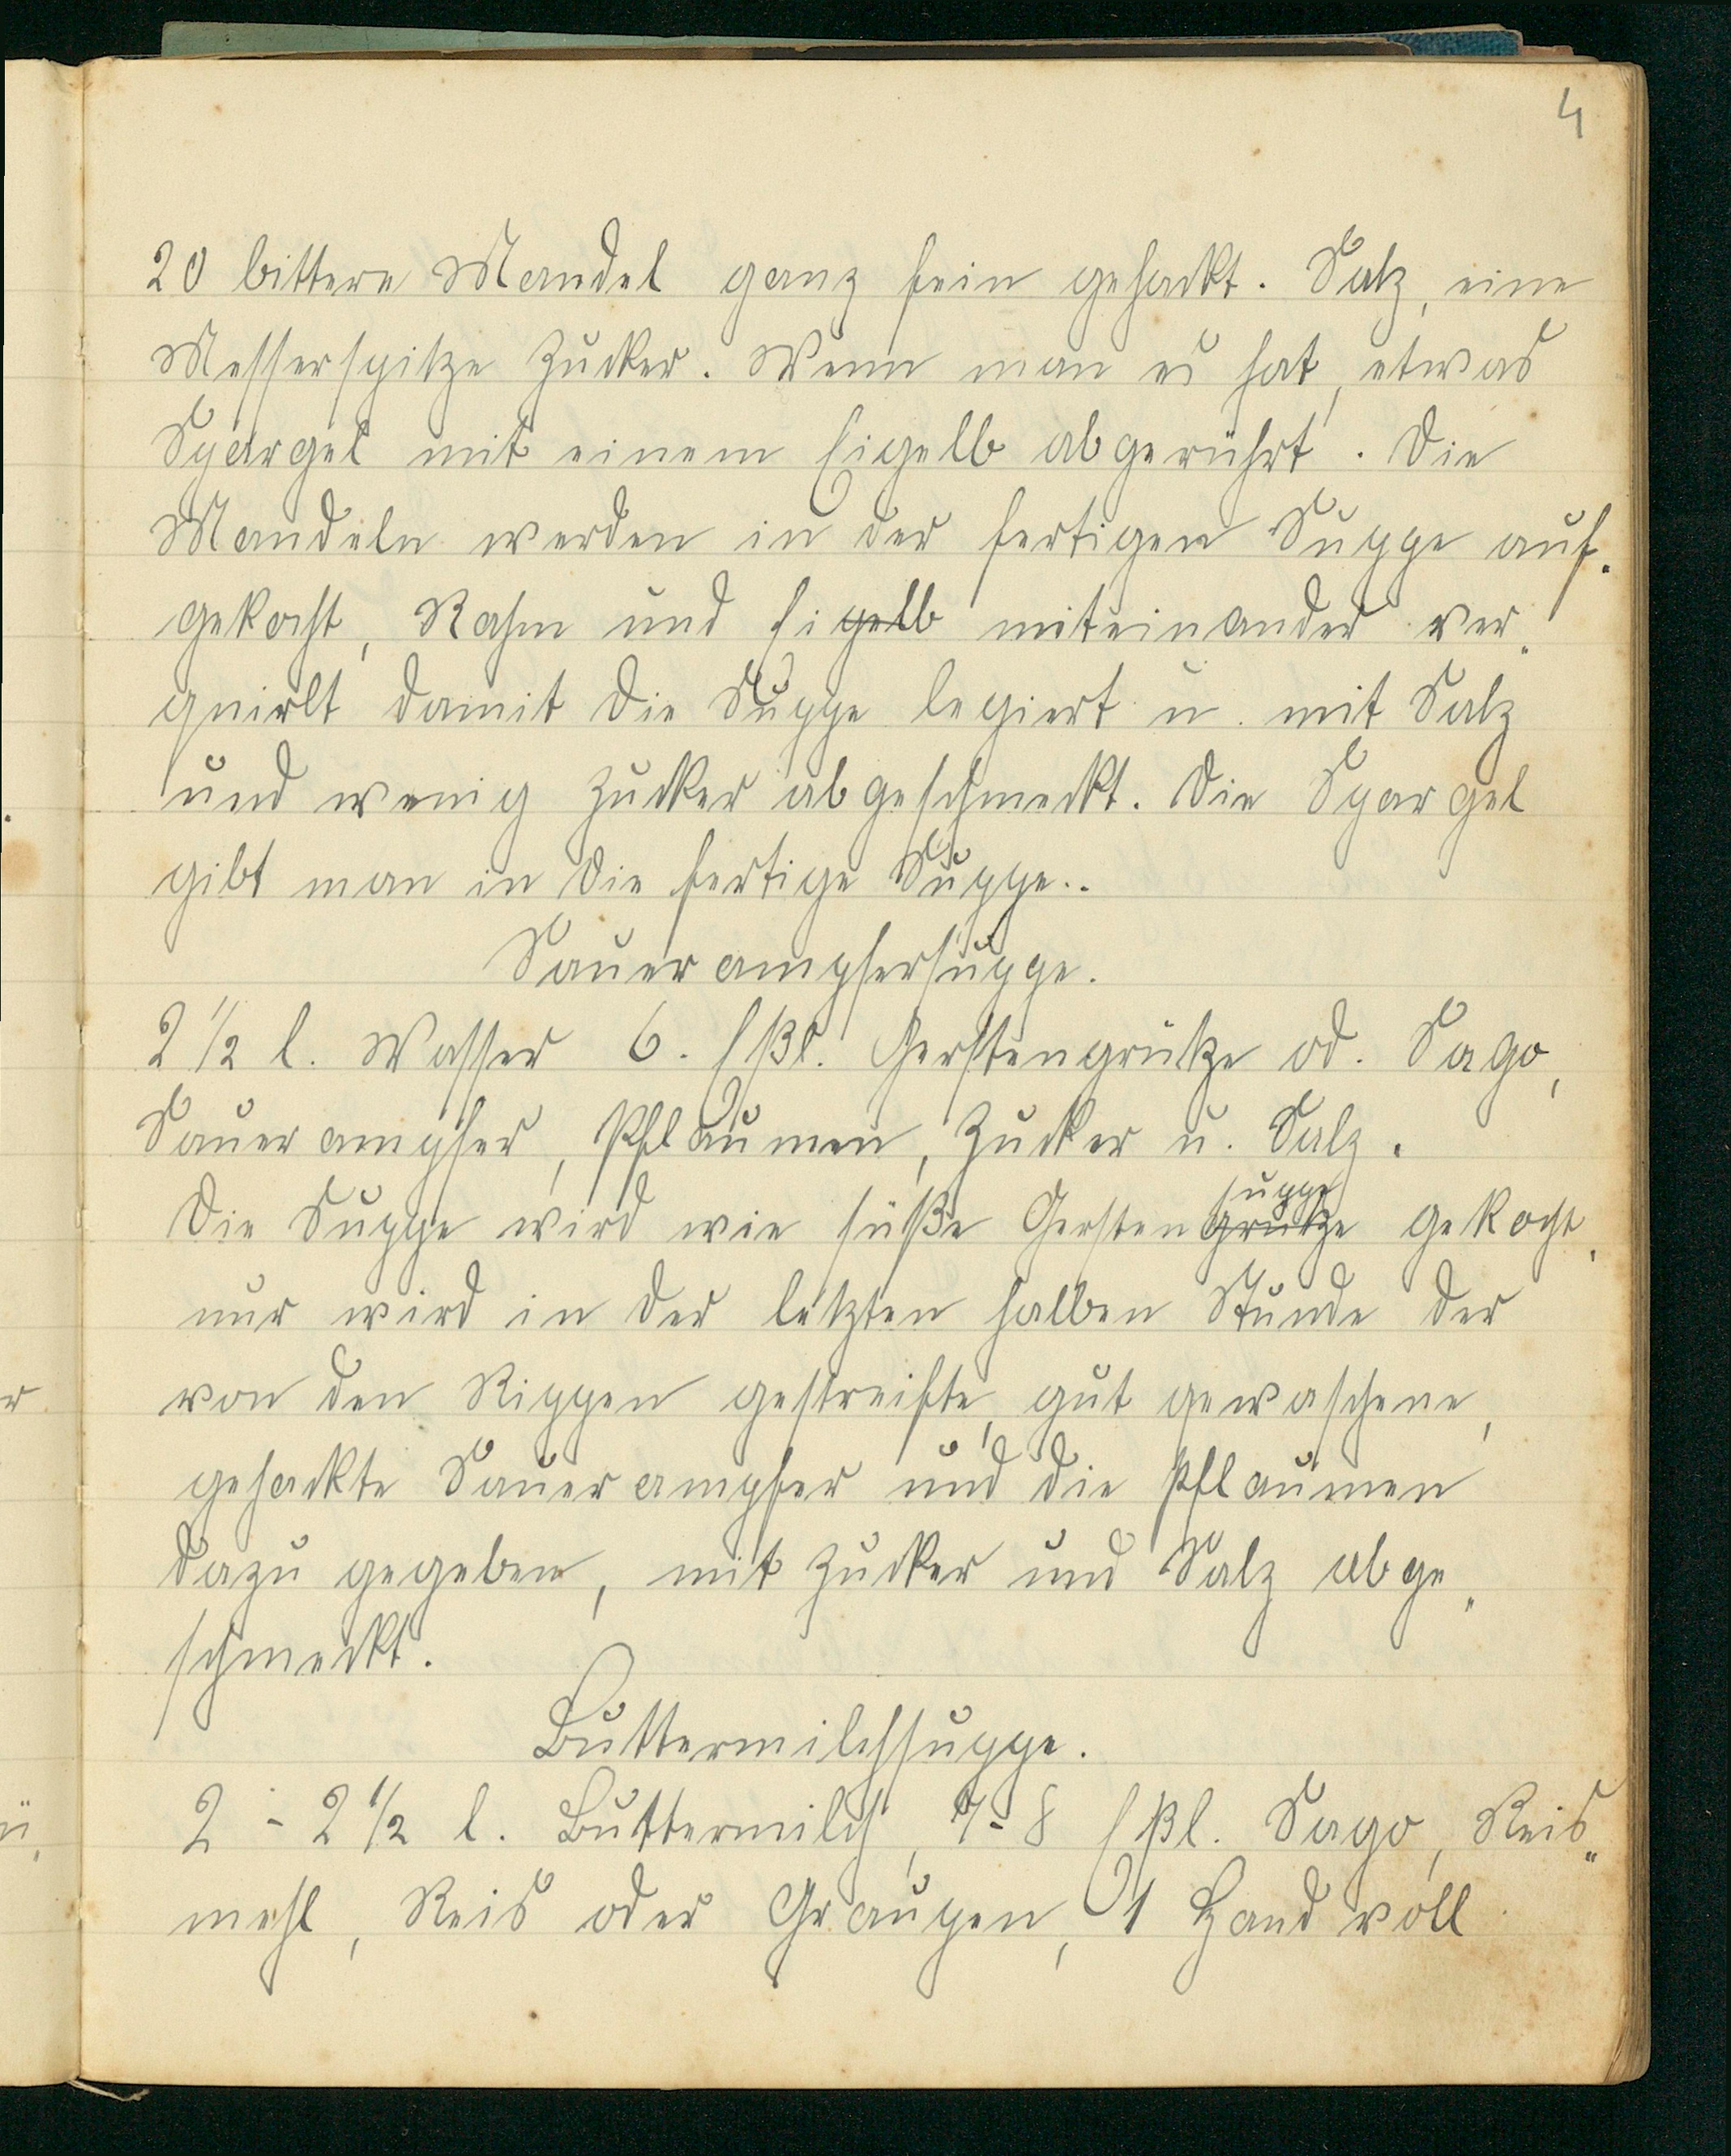 4
20 bittere Mandel ganz fein gehackt. Salz, eine
Messerspitze Zucker. Wenn man es hat, etwas
Spargel mit einem Eigelb abgerührt. Die
Mandeln werden in der fertigen Suppe auf-
gekocht, Rahm und Eigelb miteinander ver-
quirlt damit die Suppe legiert u. mit Salz
und wenig Zucker abgeschmeckt. Die Spargel
gibt man in die fertige Suppe..
Sauerampfersuppe.
2 1/2 l. Wasser 6. Eßl. Gerstengrütze od. Sago,
Sauerampfer, Pflaumen, Zucker u. Salz.
suppe
Die Suppe wird wie süße Gerstengrütze gekocht,
nur wird in der letzten halben Stunde der
von den Rippen gestreifte, gut gewaschene,
gehackte Sauerampfer und die Pflaumen
dazu gegeben, mit Zucker und Salz abge-
schmeckt.
Buttermilchsuppe.
2 - 2 1/2 l. Buttermilch, 7-8 Eßl. Sago, Reis-
mehl, Reis oder Graupen, 1 Hand voll